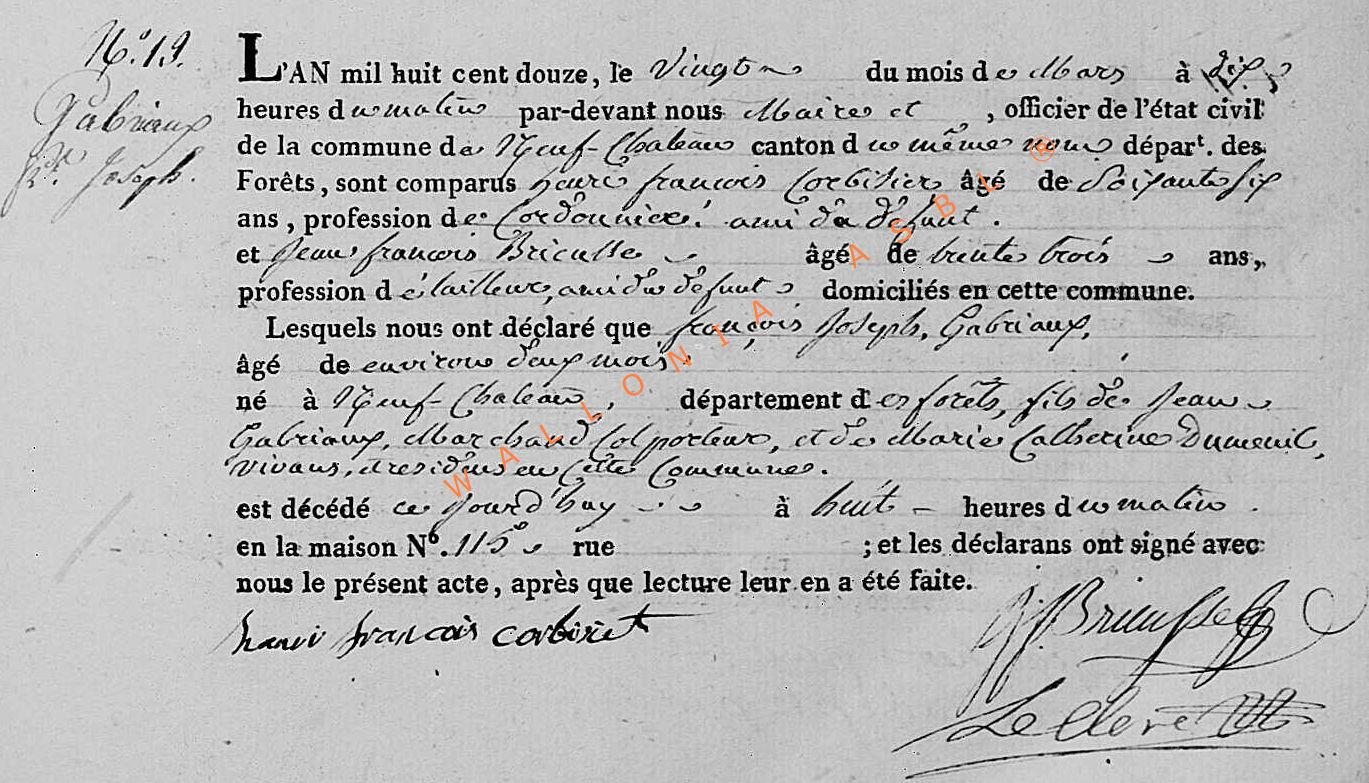 N.º 19.
Gabriaux
fr. Joseph.
L'AN mil huit cent douze, le Vingt du mois de Mars à dix
heures du matin par-devant nous Maire et , officier de l'état civil
de la commune de Neuf-Chateau canton du même nom départ. des
Forêts, sont comparus henri françois Corbisier âgé de Soixante six
ans, profession de Cordonnier, ami du défunt.
et Jean françois Briculle âgé de trente trois ans,
profession de tailleur, ami du défunt domiciliés en cette commune.
Lesquels nous ont déclaré que françois Joseph, Gabriaux,
âgé de environ deux mois
né à Neuf-Chateau, département des forêts, fils de Jean
Gabriaux, Marchand Colporteur, et de Marie Catherine Dumenil,
vivans, et residens en Cette Commune.
est décédé ce jourd'huy à huit heures du matin.
en la maison Nº. 115 rue ; et les déclarans ont signé avec
nous le présent acte, après que lecture leur en a été faite.
henri francois corbisiet
Leclere
WALLONIA ASBL ®